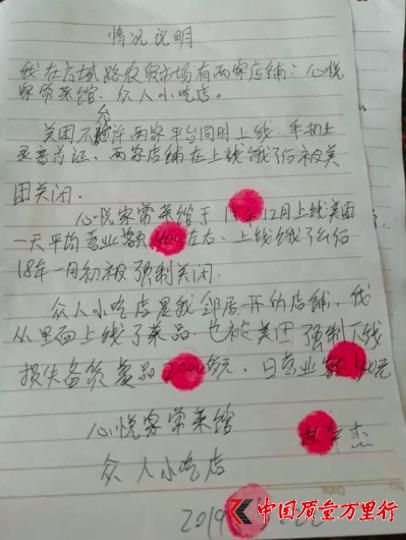 情况说明
我在云域路农贸市场有两家店铺：心悦
家常菜馆、众人小吃店。
美团不允许两家平台同时上线，手机上
录音为证，两家店铺在上线饿了么后被美
团关闭.
心悦家常菜馆于 年12月上线美团
一天平均营业额 左右、上线饿了么后
18年一月初被强制关闭.
众人小吃店是我邻居开的店铺，我
从里面上线了菜品，也被美团强制下线
损失备货 元、日营业额 40元
心悦家常菜馆
众人小吃店
2019
中国质量万里行